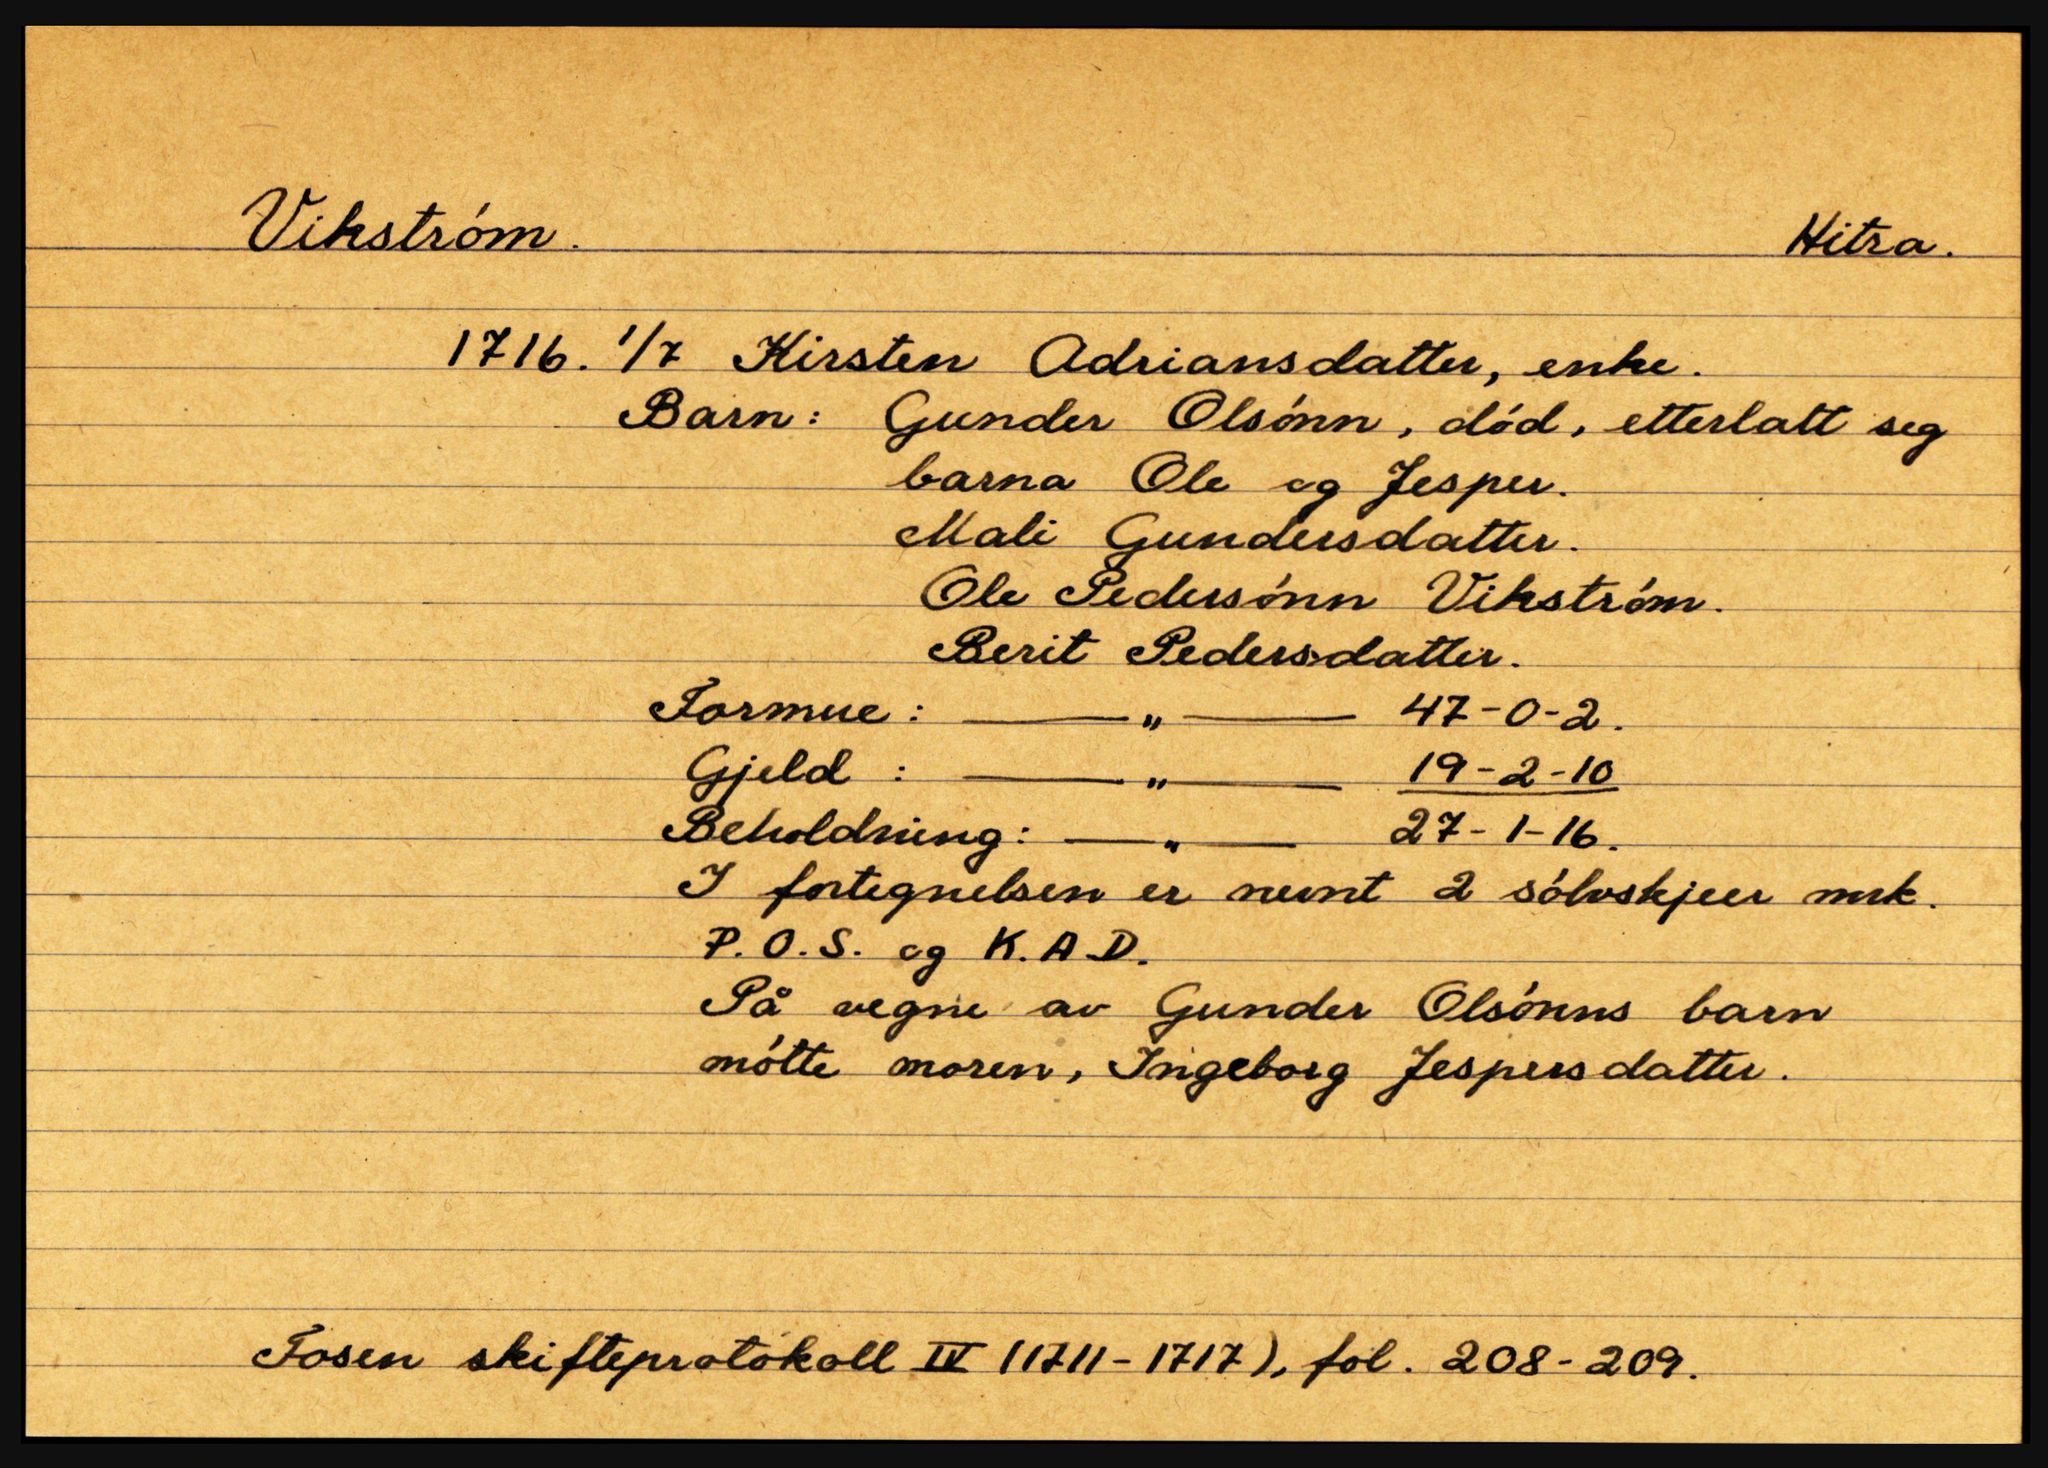 Vikstróm. Hitra.
1716. 1/7 Kirsten Adriansdatter, enke.
Barn: Gunder Olsónn, dód, etterlatt seg
barna Ole og Jesper.
Mali Gundersdatter.
Ole Pedersónn Vikstróm.
Berit Pedersdatter.
Formue: — „ — 47-0-2.
Gjeld : — „ — 19-2-10
Beholdning: — „ — 27-1-16.
I fortegnelsen er nevnt 2 sólvskjeer mrk.
P.O.S. og K.A.D.
På vegne av Gunder Olsónns barn
mótte moren, Ingeborg Jespersdatter.
Fosen skifteprotokoll IV (1711-1717), fol. 208-209.